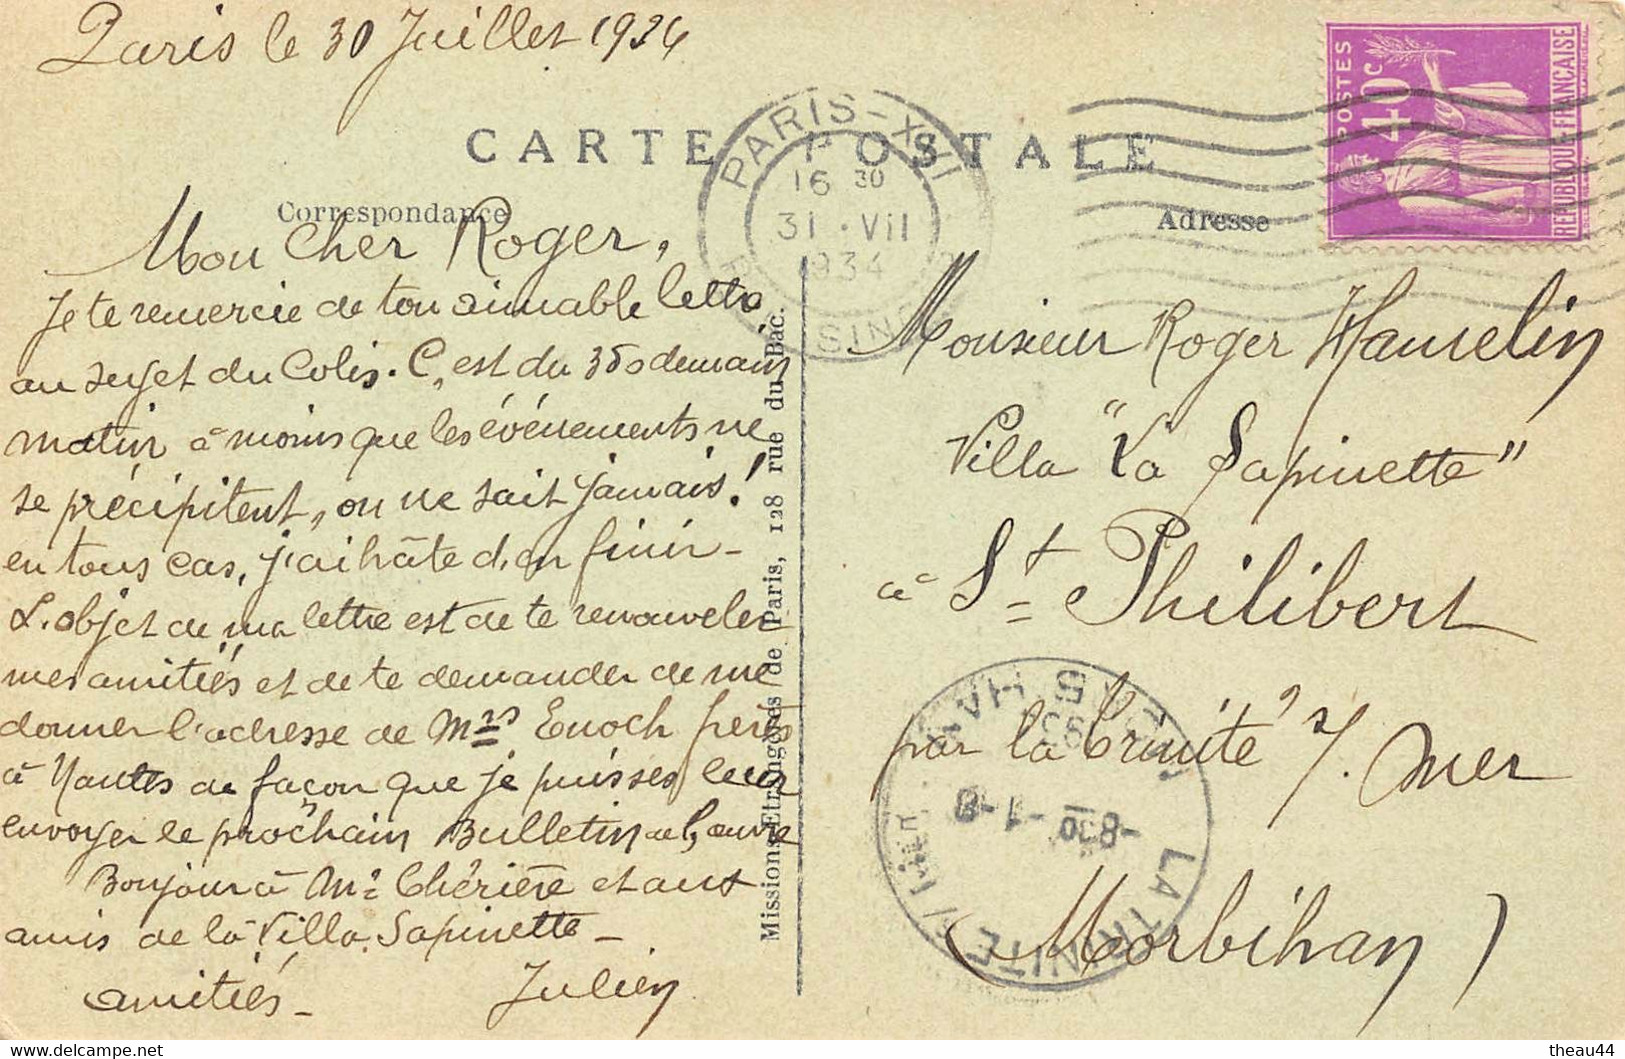 Paris le 30 Juillet 1934
CARTE POSTALE
Correspondance
Mon Cher Roger,
Je te remercie de ton aimable lettre
au sujet du Colis. C'est du demain
matin à moins que les événements ne
se précipitent, on ne sait jamais!
en tous cas, j'ai hâte d'en finir -
L'objet de ma lettre est de te renouveler
mes amitiés et de te demander de me
donner l'adresse de Mrs Enoch frères
à Nantes de façon que je puisses leur
envoyer le prochain Bulletin de l'œuvre
Bonjour à Mr Chérière et aux
amis de la Villa Sapinette -
amitiés - Julien
Missions Etrangères de Paris, 128 rue du Bac.
PARIS-XIII
16 30
31 · VII
1934
POSTES
40c
REPUBLIQUE FRANÇAISE
Adresse
Monsieur Roger Hamelin
Villa "La Sapinette"
à St Philibert
par la Trinité s/. Mer
(Morbihan)
LA TRINITE S/ MER
8 30 -1-8
theau44